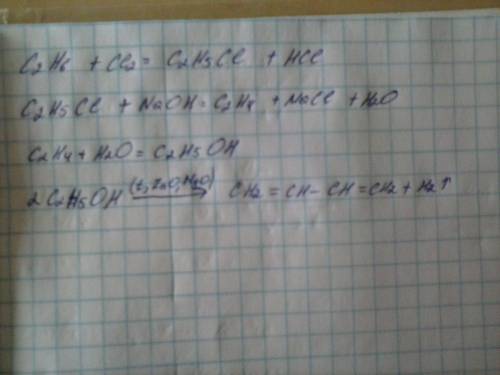 C2H6 + Cl2 = C2H5Cl + HCl
C2H5Cl + NaOH = C2H4 + NaCl + H2O
C2H4 + H2O = C2H5OH
2C2H5OH (t, ZnO, MgO) → CH2 = CH - CH = CH2 + H2↑